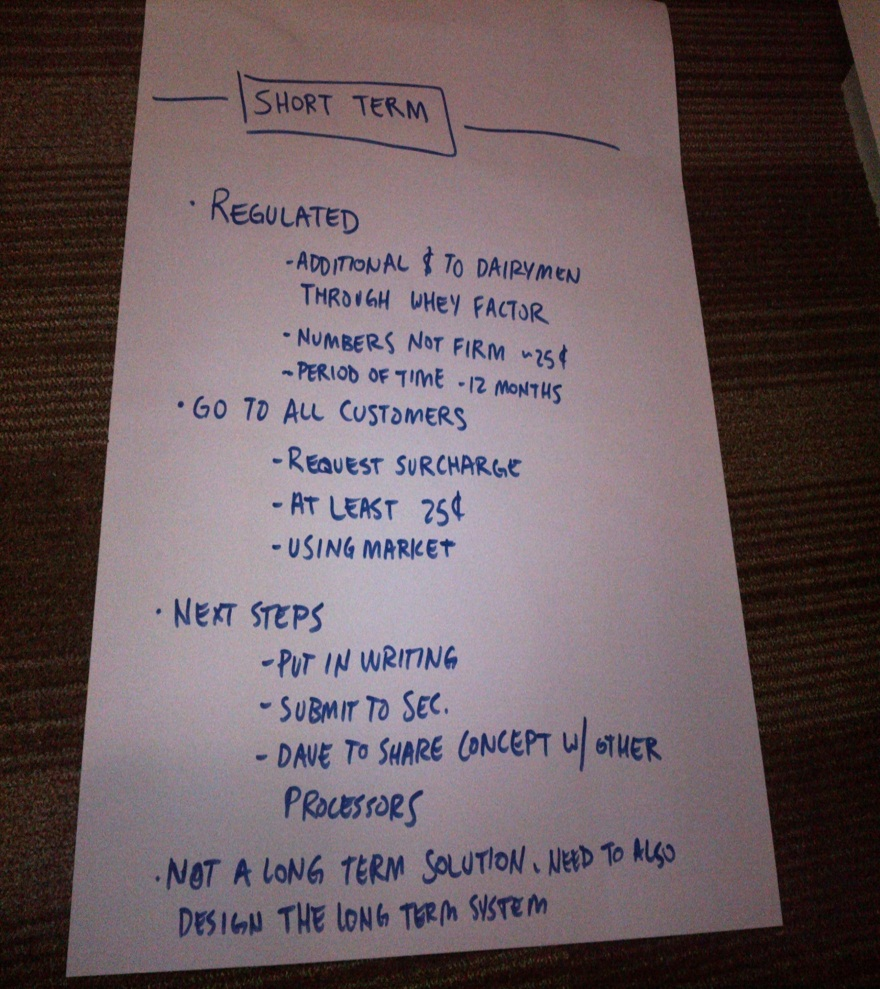 SHORT TERM
· REGULATED
-ADDITIONAL $ TO DAIRYMEN
THROUGH WHEY FACTOR
-NUMBERS NOT FIRM ~25¢
-PERIOD OF TIME -12 MONTHS
· GO TO ALL CUSTOMERS
-REQUEST SURCHARGE
- AT LEAST 25¢
-USING MARKET
· NEXT STEPS
-PUT IN WRITING
- SUBMIT TO SEC.
- DAVE TO SHARE CONCEPT W/ OTHER
PROCESSORS
· NOT A LONG TERM SOLUTION. NEED TO ALSO
DESIGN THE LONG TERM SYSTEM